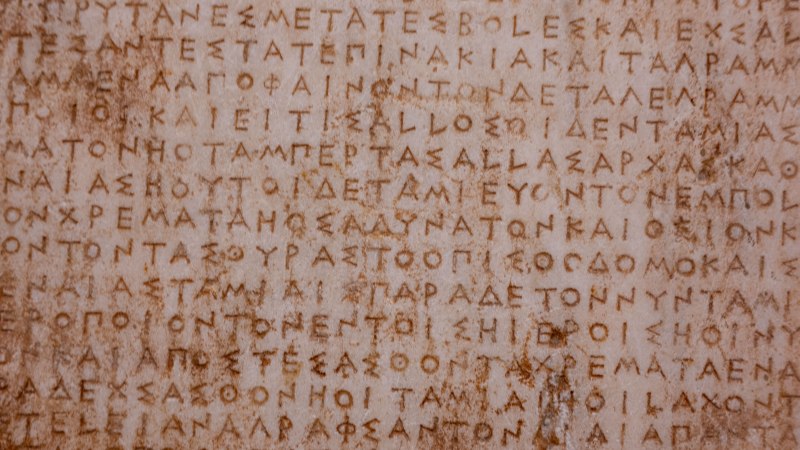 ΡΥΤΑΝΕΣΜΕΤΑΤΕΣΒΟΛΕΣΚΑΙΕΧΣΑΛ
ΤΕΣΑΝΤΕΣΤΑΤΕΠΙΝΑΚΙΑΚΑΙΤΑΓΡΑΜΜ
ΑΜΜΕΝΑΑΠΟΦΑΙΝΟΝΤΟΝΔΕΤΑΓΕΓΡΑΜΜ
ΠΟΙΟΙΚΑΙΕΙΤΙΣΑΛΛΟΣΟΙΔΕΝΤΑΜΙΑΣ
ΜΑΤΟΝΗΟΤΑΜΠΕΡΤΑΣΑΛΛΑΣΑΡΧΑΣΚΑΘ
ΝΑΙΑΣΗΟΥΤΟΙΔΕΤΑΜΙΕΥΟΝΤΟΝΕΜΠΟΛ
ΟΝΧΡΕΜΑΤΑΗΟΣΑΔΥΝΑΤΟΝΚΑΙΟΣΙΟΝΚ
ΟΝΤΟΝΤΑΣΘΥΡΑΣΤΟΟΠΙΣΘΟΔΟΜΟΚΑΙΣ
ΕΝΑΙΑΣΤΑΜΙΑΙΣΠΑΡΑΔΕΤΟΝΝΥΝΤΑΜΙ
ΕΡΟΠΟΙΟΝΤΟΝΕΝΤΟΙΣΗΙΕΡΟΙΣΗΟΙΝΥ
ΟΝΚΑΙΑΠΟΣΤΕΣΑΣΘΟΝΤΑΧΡΕΜΑΤΑΕΝΑ
ΡΑΔΕΧΣΑΣΘΟΝΗΟΙΤΑΜΙΑΙΗΟΙΛΑΧΟΝΤ
ΣΤΕΛΕΙΑΝΑΓΡΑΦΣΑΝΤΟΝΜΙΑΙΑΠΑΝΤΑ